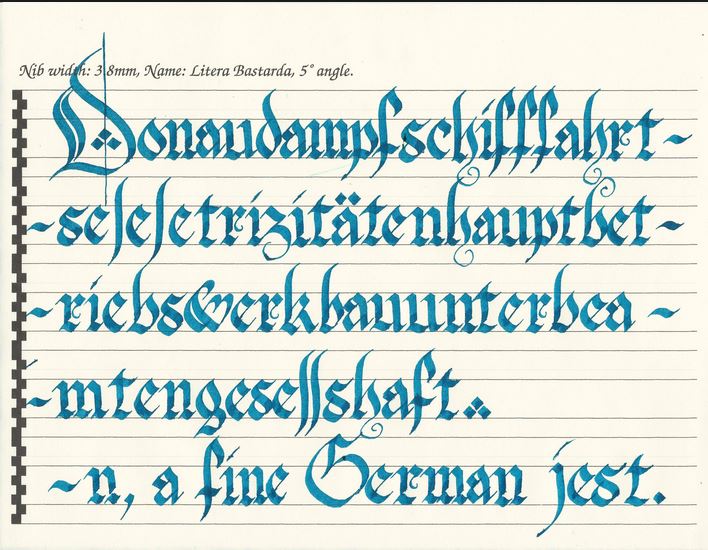 Nib width: 3.8mm, Name: Litera Bastarda, 5° angle.
Donaudampfschifffahrt~
~seleletrizitätenhauptbet~
~riebswerkbauunterbea ~
~mtengesellshaft
~n, a fine German jest.